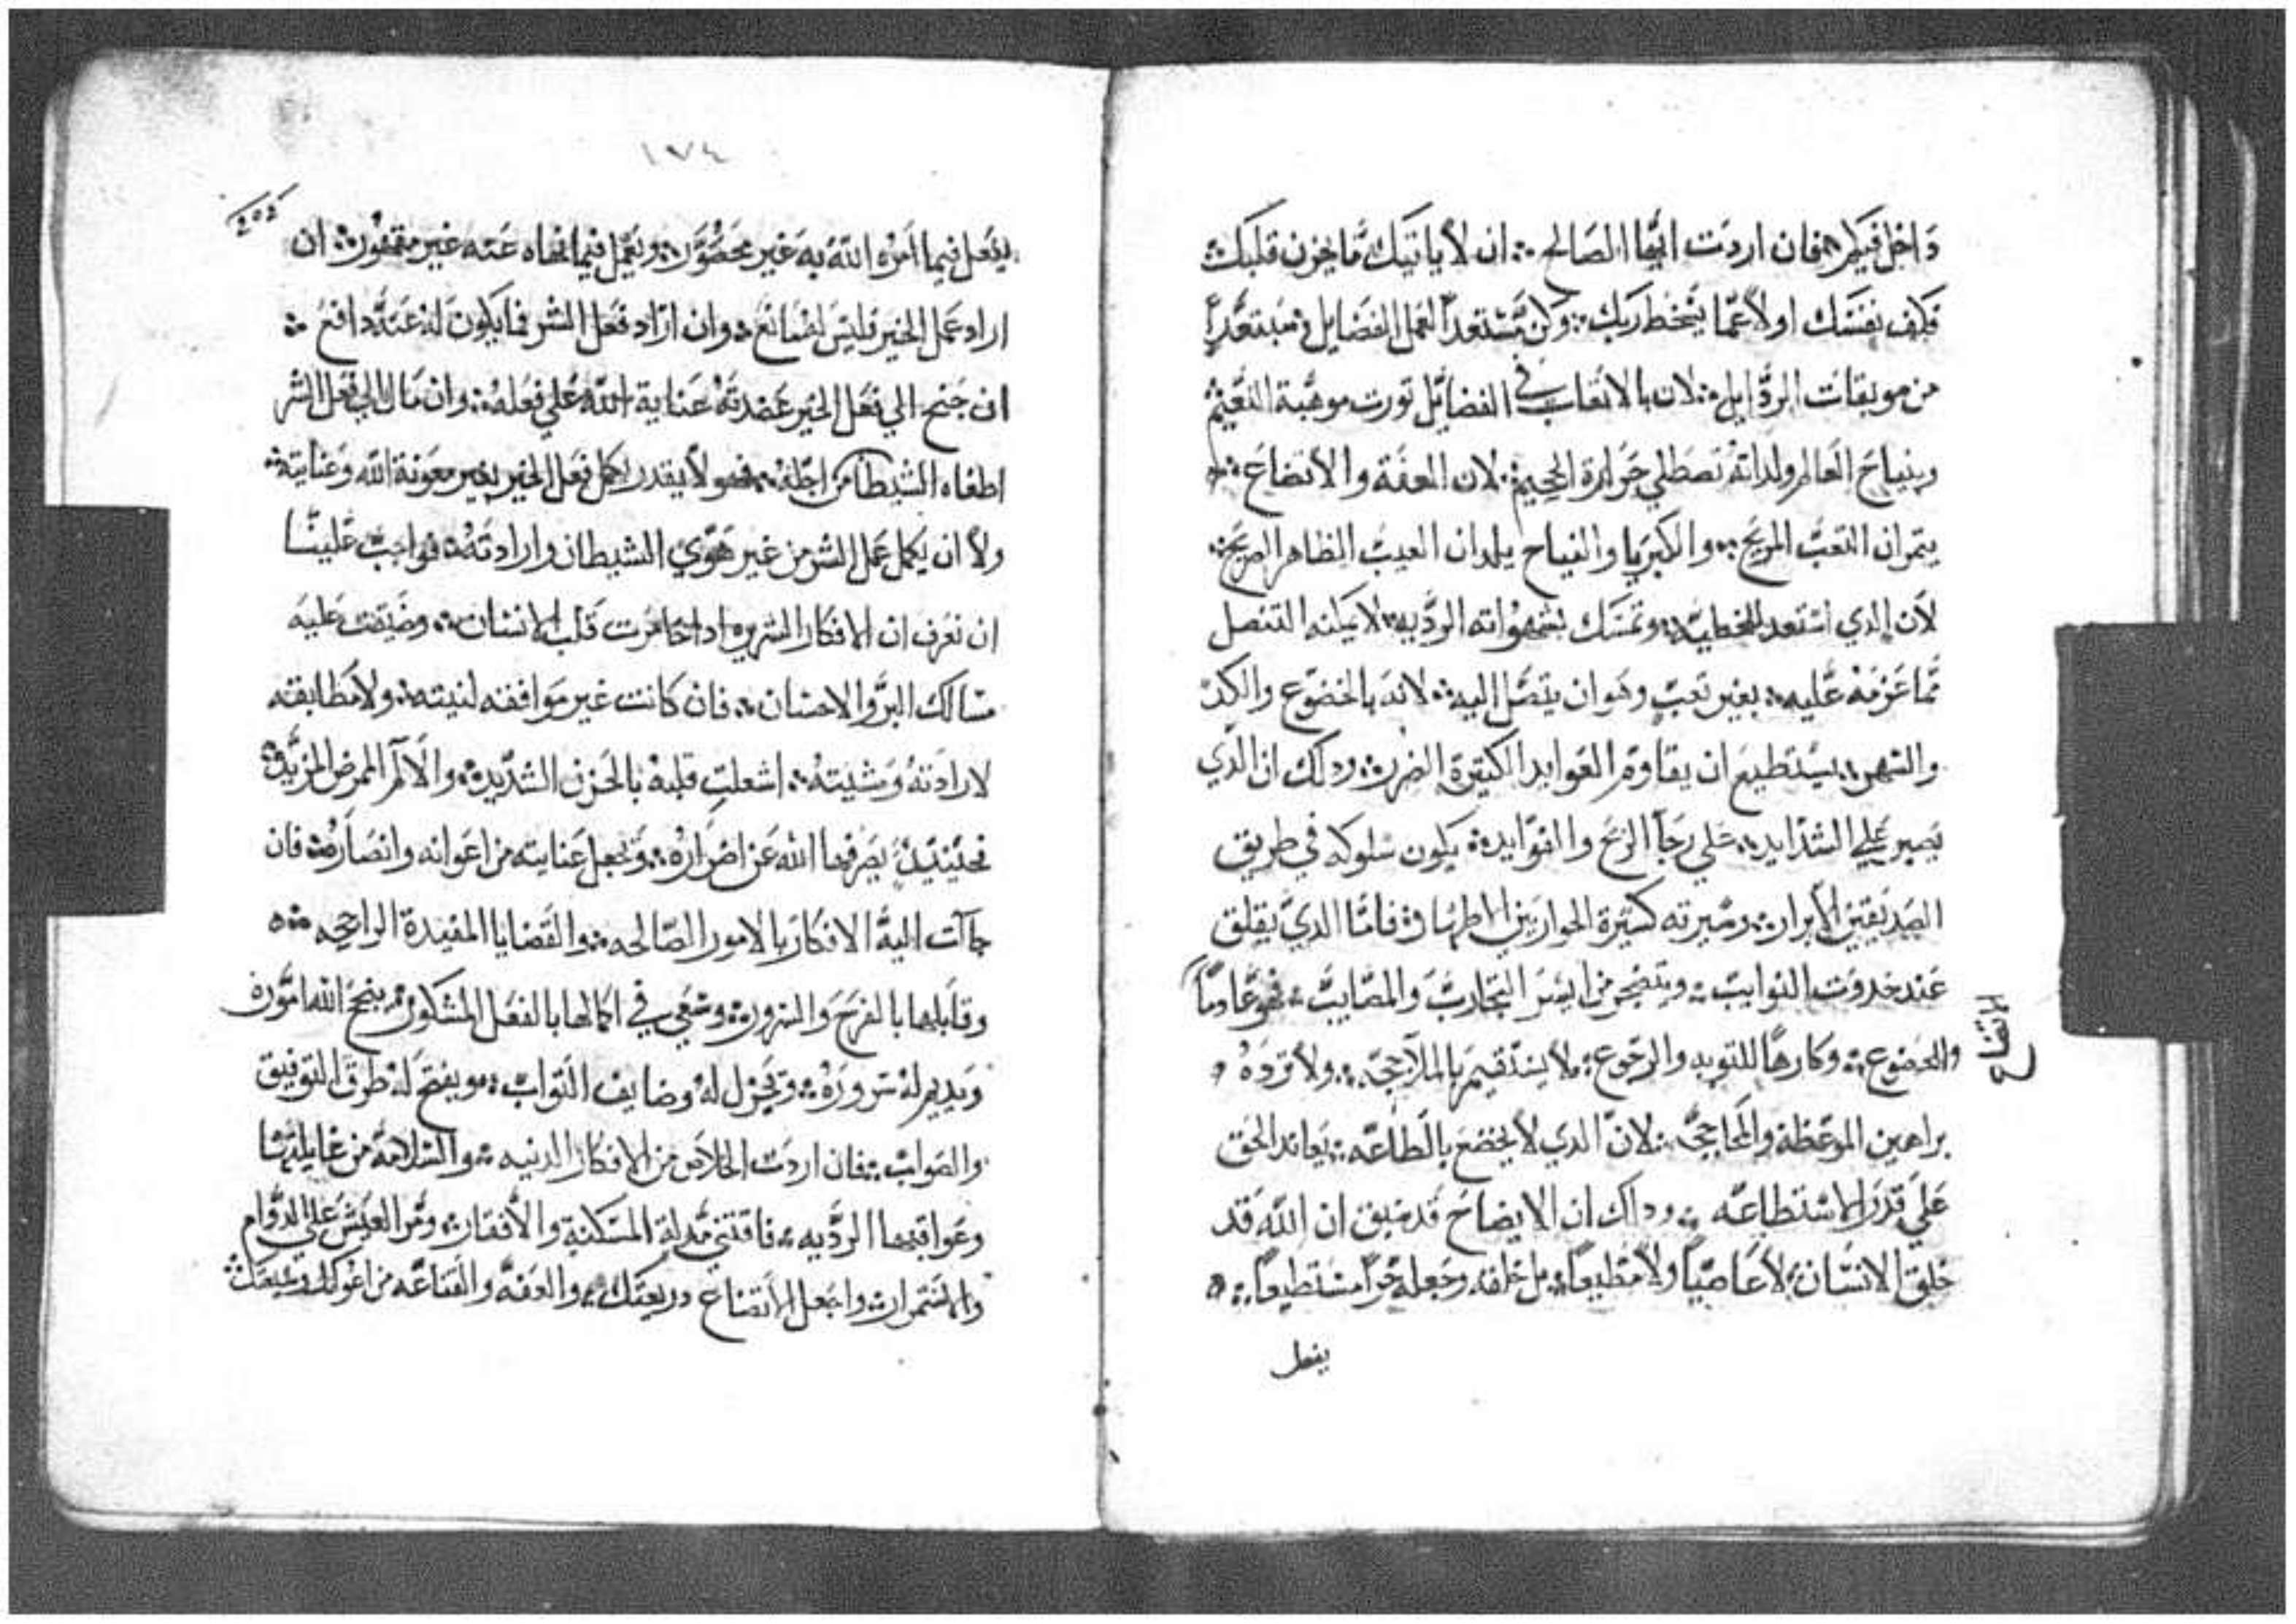 داخل فيكم فان اردت ايها الصالح ان لا ياتيك ما يحزن قلبك
فكف نفسك اولا عما يسخط ربك وكن مستعدا لعمل الفضايل مبتعدا
من موبقات الردايل لان بالاتعاب في الفضايل تورت موهبة النعيم
وبنياح العالم ولداته تصطلي حرارة الجحيم لان العفة والاتضاع
يتمران التعب المريح والكبريا والنياح يلدان العيب الظاهر الصريح
لان الدي استعد للخطيه وتمسك بشهواته الرديه لا يمكنه التنصل
مما عزم عليه بغير تعب وهوان يتصل اليه لانه بالخضوع والكد
والسهر يستطيع ان يقاوم العوايد الكتيرة الضرر ودلك ان الدي
يصبر علي الشدايد علي رجا الربح والفوايد يكون سلوكه في طريق
الصديقين الابرار وسيرته كسيرة الحواريين الاطهار فاما الدي يقلق
عند حدوت النوايب ويتضجر من ايسر التجارب والمصايب فهو عادما
الاتضاع
والخضوع وكارها للتوبه والرجوع لا يستقيم بالملاججه ولا ترده
براهين الموعظة والمحاججه لان الدي لا يخضع بالطاعه يعاند الحق
علي قدر الاستطاعه ودلك ان الايضاح قد سبق ان الله قد
خلق الانسان لا عاصيا ولا مطيعا بل خلقه وجعله حرا مستطيعا
يفعل
١٧٤
يفعل فيما امره الله به غير محصور ويعمل فيما نهاه عنه غير مقهور ان
اراد عمل الخير فليس له مانع وان اراد فعل الشر فما يكون له عنه دافع
ان جنح الي فعل الخير عضدته عناية الله علي فعله وان مال الي فعل الشر
اطغاه الشيطان من اجله فهو لا يقدر يكمل فعل الخير بغير معونة الله وعنايته
ولا ان يكمل عمل الشر من غير هوي الشيطان وارادته فواجب علينا
ان نعرف ان الافكار الشريره ادا خامرت قلب الانسان وضيقت عليه
مسالك البر والاحسان فان كانت غير موافقه لنيته ولا مطابقه
لارادته ومشيته اشعلت قلبه بالحزن الشديد والالم الممرض المزيد
فحينيد يصرفها الله عن اضراره ويجعل عنايته من اعوانه وانصاره فان
جاات اليه الافكار بالامور الصالحه والقضايا المفيدة الراجحه
وقابلها بالفرح والسرور وسعي في اكمالها بالفعل المشكور ينجح الله اموره
ويديم له سروره ويجزل له وضايف التواب ويفتح له طرق التوفيق
والصواب فان اردت الخلاص من الافكار الدنيه والسلامة من غايلتها
وعواقبها الرديه فاقتني مدلة المسكنة والافتقار ومر العيش علي الدوام
والاستمرار واجعل الاتضاع دريعتك والعفه والقناعه من